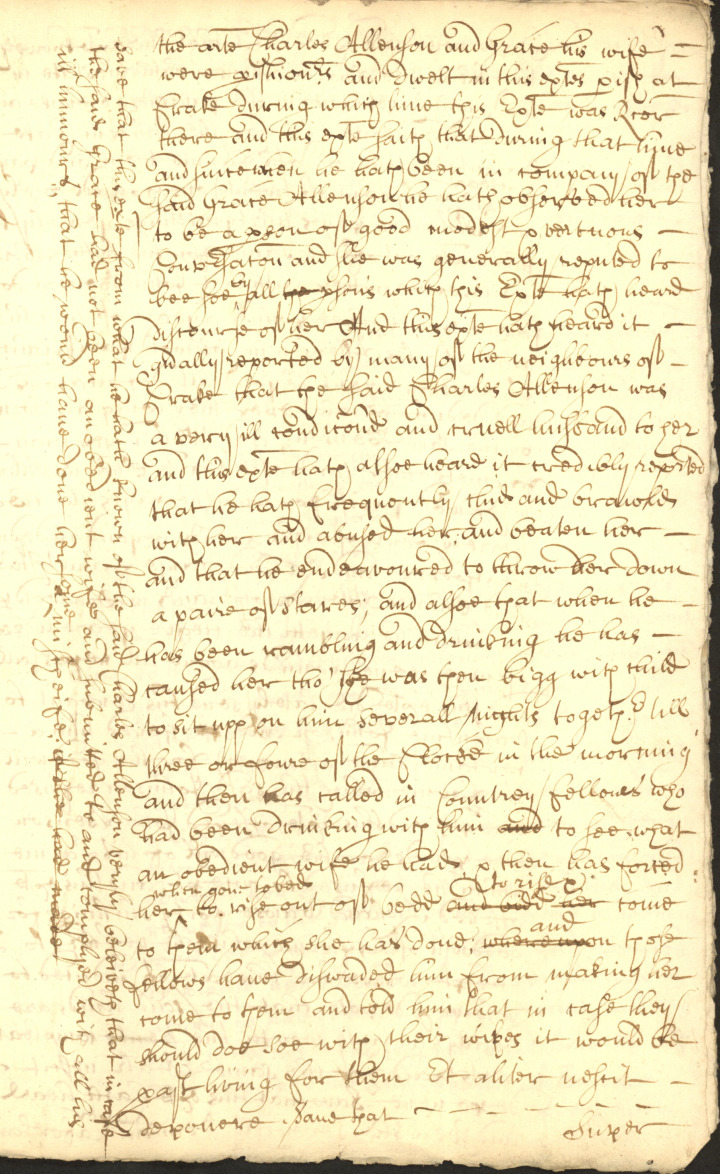 the arte Charles Allenson and Grace his wife –
were pishionrs and dwelt in this extes pish at
Crake during which time this Exte was Rcor
there and this exte saith that during that time
and since when he hath been in company of the
said Grace Allenson he hath observed her
to be a pson of good modest & vertuous –
Conversacon and she was generally reputed to
bee soe by all the psons which this Exte hath heard
discourse of her And this exte hath heard it –
usually reported by many of the neighbours of –
Crake that the said Charles Allenson was
a very ill condicond and cruell husband to her
and this exte hath alsoe heard it credibly reported
that he hath frequently chid and brawld
with her and abused her, and beaten her –
and that he endeavoured to throw her down
a paire of stares; and alsoe that when he –
has been rambling and drinking he has –
caused her tho' she was then bigg with child
to sit upp on him severall nights togethr till
three or foure of the Clocke in the morning
and then has called in Countrey fellows who
had been drinking with him and to see what
an obedient wife he had & then has forced
her when gone to bed to rise out of bedd and bidd her to rise & come
to them which she has done; whereupon and those
fellows have diswaded him from making her
come to them and told him that in case they
should doe soe with their wives it would be
past living for them Et aliter nescit –
deponere Save that – – – – –
Super
save that this exte from what he hath known of the said Charles Allenson verily beleiveth that in case
the said Grace had not been an obedient wife and submitted to and complyed with all his
ill humours, that he would have done her some mischeife, if she had made